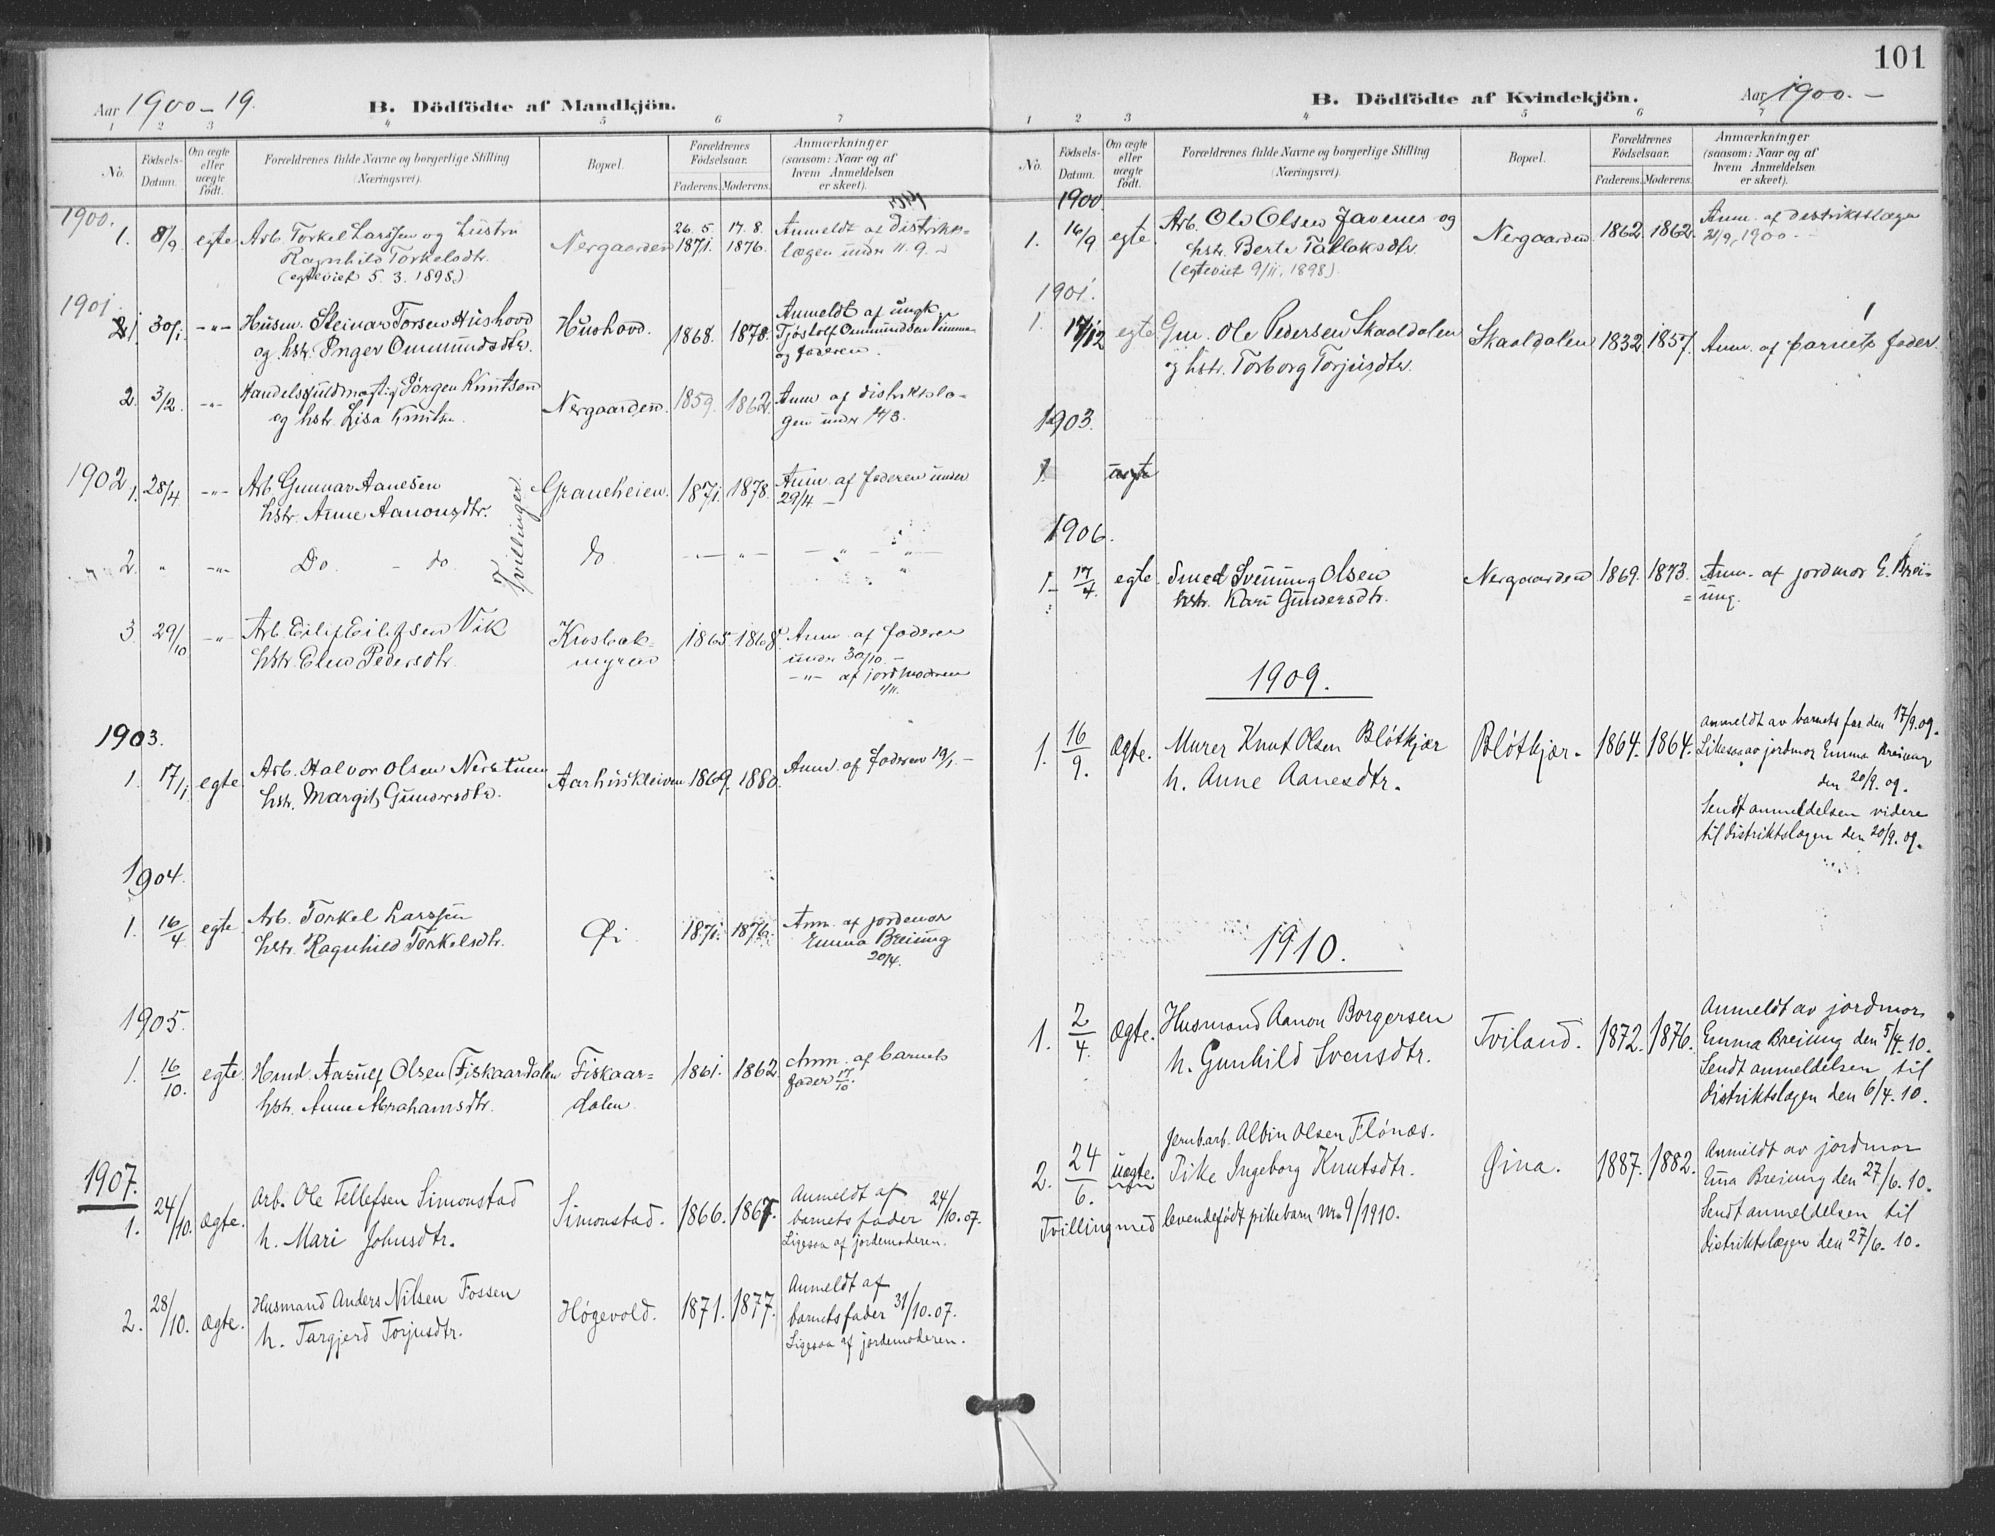 Aar 1900 – 19.
B. Dödfödte af Mandkjön.
1 2 3 4 5 6 7
No.
Födsels-Datum.
Om ægte eller uægte födt.
Forældrenes fulde Navne og borgerlige Stilling (Næringsvei).
Bopæl.
Forældrenes Födselsaar.
Faderens. Moderens.
Anmærkninger (saasom: Naar og af hvem Anmeldelsen er skeet).
1900.
1. 8/9 egte Arb. Torkel Larssen og hustru Nergaarden 26. 5. 1871. 17. 8. 1876. Anmeldt af distrikts-
Ragnhild Torkelsdtr. lægen under 11. 9. –
(egteviet 5. 3. 1898.)
1901.
1. 30/1 –"– Husm. Steinar Torsen Hushovd Hushovd. 1868. 1878. Anmeldt af ungk.
og hstr. Inger Ommundsdtr. Tjøstolf Ommundsen Simme
og faderen.
2. 3/2 –"– Handelsfuldmægtig Jörgen Knutsen Nergaarden. 1859. 1862. Anm. af distriktslæ-
og hstr. Lisa Knutsen. gen under 14/3.
1902
1. 28/4 –"– Arb. Gunnar Aanesen Graneheien. 1871. 1878. Anm. af faderen under
hstr. Anne Aanonsdtr. 29/4 –
Tvillinger
2. " –"– Do. – do. do – " – " –
3. 29/10 –"– Arb. Eilif Eilifsen Vik Krosbak- 1865. 1868. Anm. af faderen
hstr. Elen Pedersdtr. myren under 30/10. –
–"– af jordmoderen
1/11.
1903.
1. 17/1 egte. Arb. Halvor Olsen Nerstuen Aarhuskleiven 1869. 1880. Anm. af faderen 19/1. –
hstr. Margit Gundersdtr.
1904.
1. 16/4 egte Arb. Torkel Larssen Øi 1871. 1876. Anm. af jordemor
hstr. Ragnhild Torkelsdtr. Emma Breiung
20/4.
1905.
1. 16/10. egte. Hmd. Aasulf Olsen Fiskaardalen Fiskaar- 1861. 1862. Anm. af barnets
hstr. Anne Abrahamsdtr. dalen. fader 17/10.
1907.
1. 24/10. ægte. Arb. Ole Tellefsen Simonstad Simonstad. 1866. 1867. Anmeldt af
h. Mari Johnsdtr. barnets fader 24/10. 07.
Ligesaa af jordemoderen.
2. 28/10. ægte. Husmand Anders Nilsen Fossen Høgevold. 1871. 1877. Anmeldt af
h. Targjerd Torjusdtr. barnets fader 31/10. 07.
Ligesaa af jordemoderen.
101
B. Dödfödte af Kvindekjön.
Aar 1900. –
1 2 3 4 5 6 7
No.
Födsels-Datum.
Om ægte eller uægte födt.
Forældrenes fulde Navne og borgerlige Stilling (Næringsvei).
Bopæl.
Forældrenes Födselsaar.
Faderens. Moderens.
Anmærkninger (saasom: Naar og af hvem Anmeldelsen er skeet).
1900.
1. 16/9 egte. Arb. Ole Olsen Javenes og Nergaarden 1862. 1862. Anm. af destriktslægen
hstr. Berte Tallaksdtr. 21/9, 1900. –
(egteviet 9/11, 1898).
1901.
1. 17/12 egte Gm. Ole Pedersen Skaaldalen Skaaldalen 1832. 1857. Anm. af barnets fader.
og hstr. Torborg Torjusdtr.
1903.
1. uegte
1906.
1. 17/4. egte. Smed Svenung Olsen Nergaarden 1869. 1873. Anm. af jordmor E. Brei-
hstr. Kari Gundersdtr. ung.
1909.
1. 16/9. ægte. Murer Knut Olsen Bløtkjær Bløtkjær. 1864. 1864. Anmeldt av barnets far den 17/9. 09.
h. Anne Aanesdtr. Likesaa av jordmor Emma Breiung
den 20/9. 09.
Sendt anmeldelsen videre
til distriktslægen den 20/9. 09.
1910.
1. 2/4. ægte. Husmand Aanon Borgersen Tviland. 1872. 1876. Anmeldt av jordmor
h. Gunhild Svensdtr. Emma Breiung den 5/4. 10.
Sendt anmeldelsen til
distriktslægen den 6/4. 10.
2. 24/6. uægte. Jernb.arb. Albin Olsen Flønæs. Øina. 1887. 1882. Anmeldt av jordmor
Pike Ingeborg Knutsdtr. Emma Breiung den 27/6. 10.
Tvilling med levendefødt pikebarn nr. 9/1910. Sendt anmeldelsen til
distriktslægen den 27/6. 10.